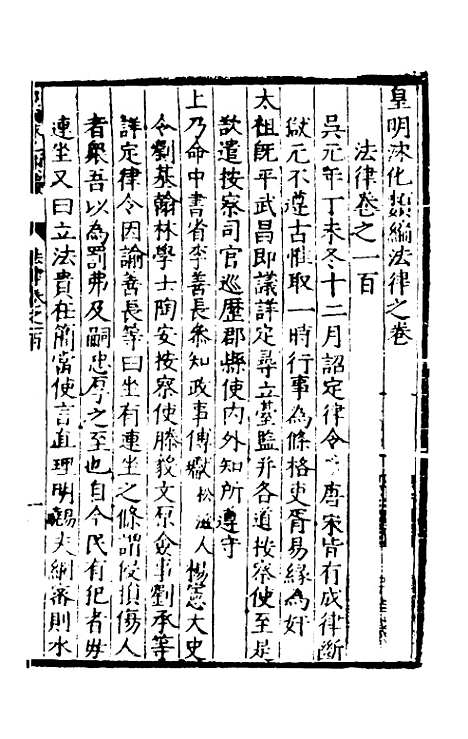 皇明泳化類編法律之卷
法律卷之一百
吳元年丁未冬十二月詔定律令唐宋皆有成律斷
獄元不遵古惟取一時行事為條格吏胥易緣為奸
太祖旣平武昌即議詳定尋立臺監并各道按察使至是
故遣按察司官巡歷郡縣使內外知所遵守
上乃命中書省李善長叅知政事傅瓛松滋人楊憲太史
令劉基翰林學士陶安按察使滕毅文原僉事劉承等
詳定律令因諭善長等曰坐有連坐之條謂侵損傷人
者衆吾以為罰弗及嗣忠厚之至也自今民有犯者毋
連坐又曰立法貴在簡當使言直理明錫夫綱密則水
法律卷之一百
一